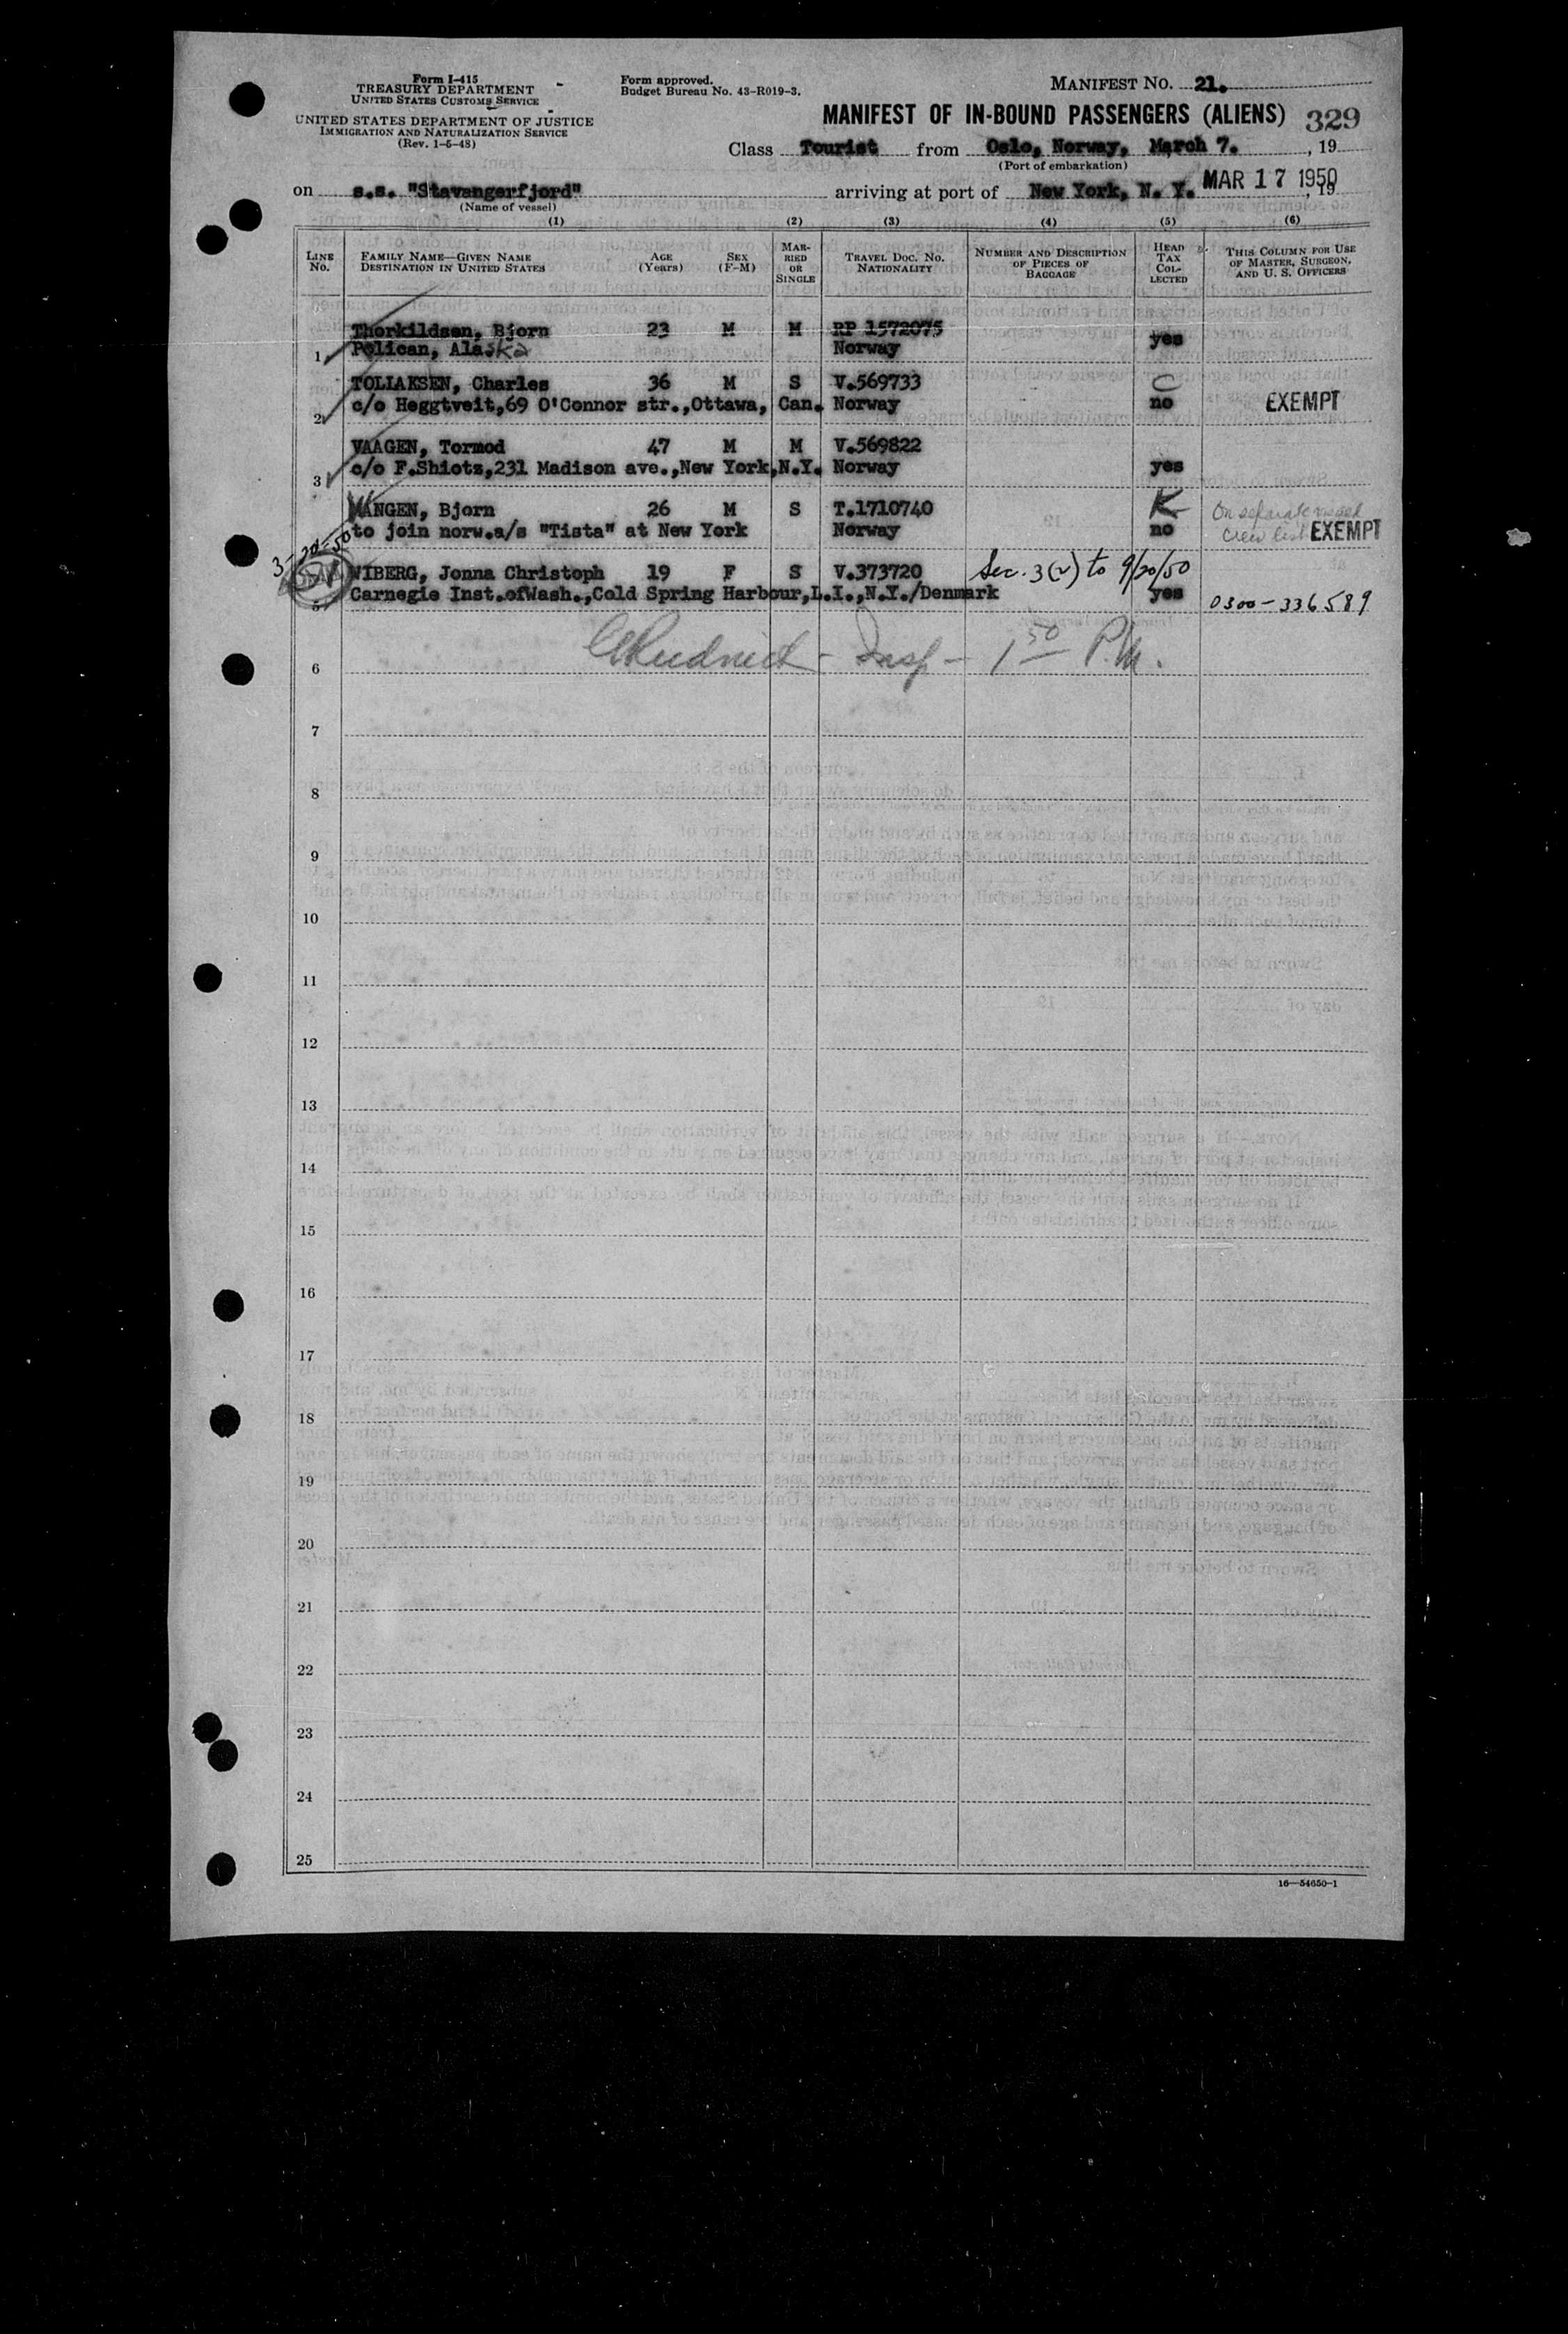 Form I-415
TREASURY DEPARTMENT
UNITED STATES CUSTOMS SERVICE
UNITED STATES DEPARTMENT OF JUSTICE
IMMIGRATION AND NATURALIZATION SERVICE
(Rev. 1-5-48)
Form approved.
Budget Bureau No. 43-R019-3.
MANIFEST NO. 21.
MANIFEST OF IN-BOUND PASSENGERS (ALIENS) 329
Class Tourist from Oslo, Norway, March 7. , 19
(Port of embarkation)
on s.s. "Stavangerfjord" arriving at port of New York, N. Y. MAR 17 1950 , 19
(Name of vessel)
(1) (2) (3) (4) (5) (6)
LINE No. FAMILY NAME—GIVEN NAME DESTINATION IN UNITED STATES AGE (Years) SEX (F-M) MARRIED OR SINGLE TRAVEL DOC. NO. NATIONALITY NUMBER AND DESCRIPTION OF PIECES OF BAGGAGE HEAD TAX COLLECTED THIS COLUMN FOR USE OF MASTER, SURGEON, AND U. S. OFFICERS
Thorkildsen, Bjorn 23 M M RP 1572075
1 Pelican, Alaska Norway yes
TOLIAKSEN, Charles 36 M S V.569733 C
2 c/o Heggtveit,69 O'Connor str.,Ottawa, Can. Norway no EXEMPT
VAAGEN, Tormod 47 M M V.569822
3 c/o F.Shiotz,231 Madison ave.,New York,N.Y. Norway yes
VANGEN, Bjorn 26 M S T.1710740 K On separate
to join norw.a/s "Tista" at New York Norway no crew list EXEMPT
3-20-50
WIBERG, Jonna Christoph 19 F S V.373720 Sec. 3(2) to 9/20/50
5 Carnegie Inst.ofWash.,Cold Spring Harbour,L.I.,N.Y./Denmark yes 0300-336589
Insp - 1 50 P.M.
6
7
8
9
10
11
12
13
14
15
16
17
18
19
20
21
22
23
24
25
16—54650-1